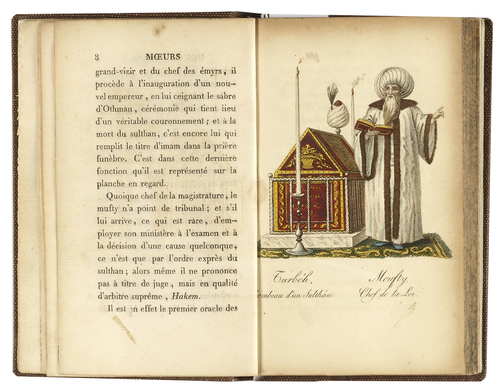 8 MŒURS
grand-vizir et du chef des émyrs, il
procède à l'inauguration d'un nou-
vel empereur, en lui ceignant le sabre
d'Othman, cérémonie qui tient lieu
d'un véritable couronnement; et à la
mort du sulthan, c'est encore lui qui
remplit le titre d'imam dans la prière
funèbre. C'est dans cette dernière
fonction qu'il est représenté sur la
planche en regard.
Quoique chef de la magistrature, le
mufty n'a point de tribunal; et s'il
lui arrive, ce qui est rare, d'em-
ployer son ministère à l'examen et à
la décision d'une cause quelconque,
ce n'est que par l'ordre exprès du
sulthan; alors même il ne prononce
pas à titre de juge, mais en qualité
d'arbitre suprême, Hakem.
Il est en effet le premier oracle des
Turbéh,
Tombeau d'un Sulthan.
Moufty,
Chef de la Loi.